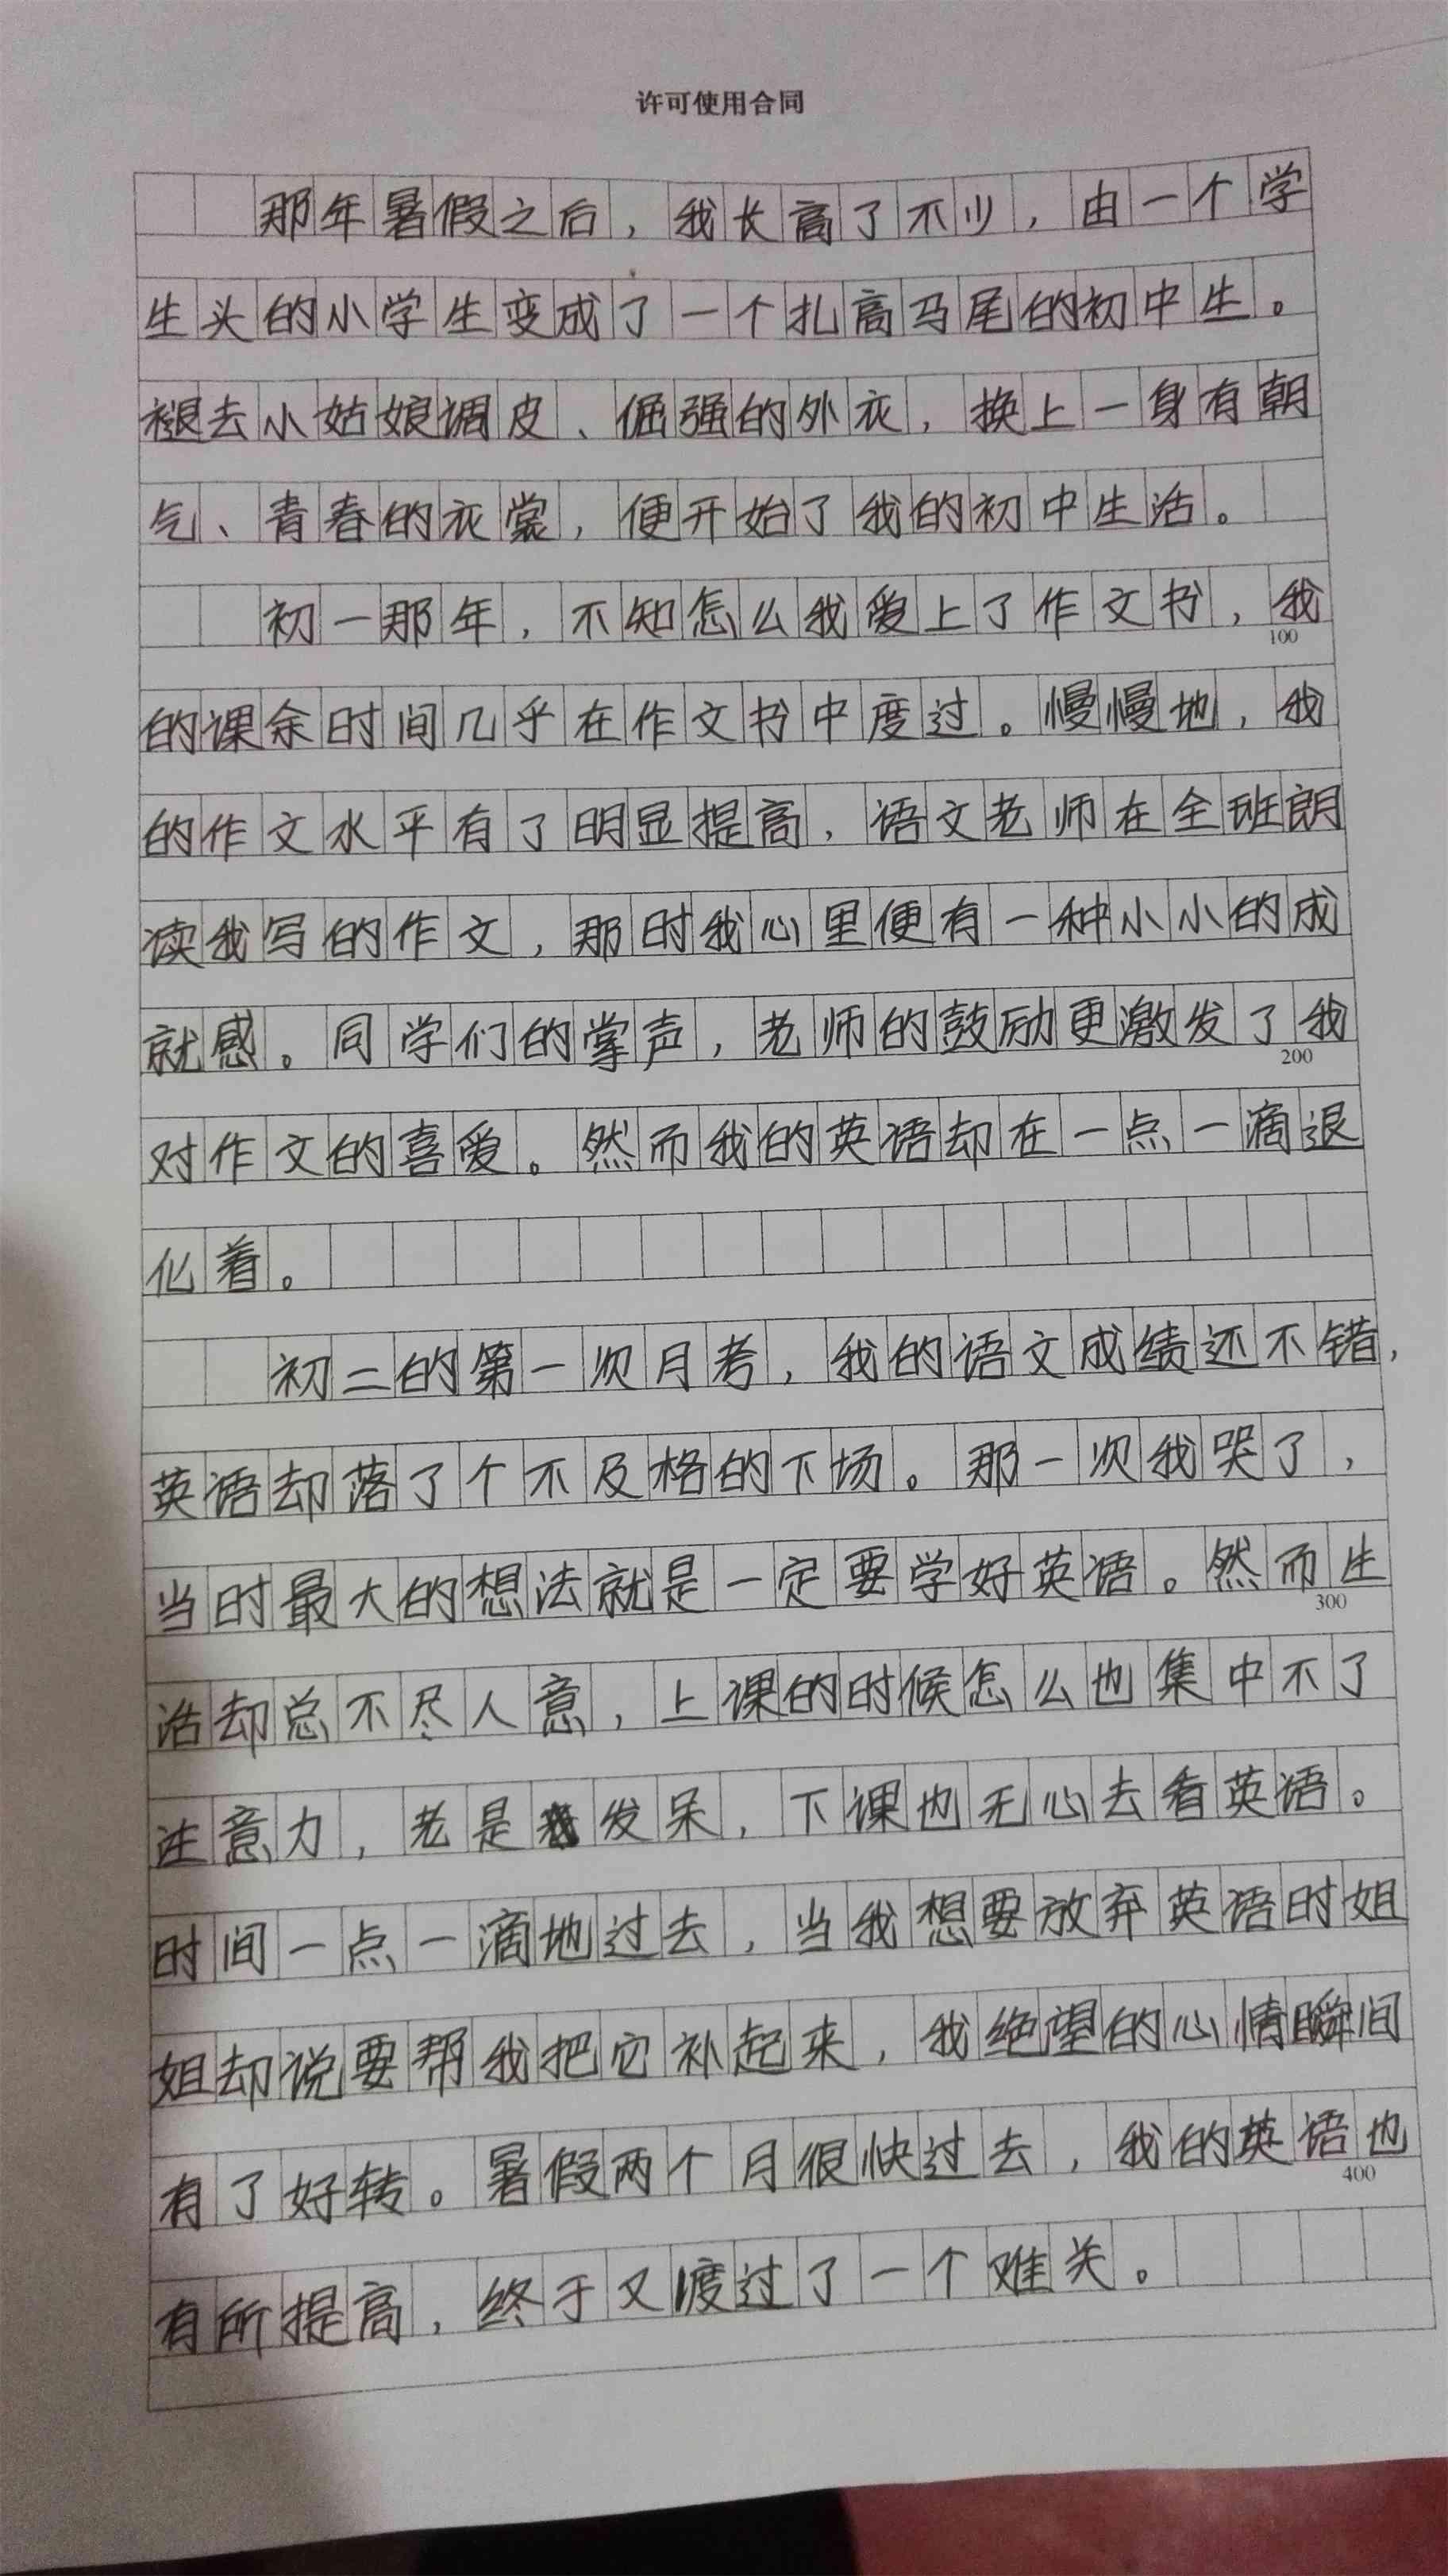 许可使用合同
那年暑假之后，我长高了不少，由一个学
生头的小学生变成了一个扎高马尾的初中生。
褪去小姑娘调皮、倔强的外衣，换上一身有朝
气、青春的衣裳，便开始了我的初中生活。
初一那年，不知怎么我爱上了作文书，我
100
的课余时间几乎在作文书中度过。慢慢地，我
的作文水平有了明显提高，语文老师在全班朗
读我写的作文，那时我心里便有一种小小的成
就感。同学们的掌声，老师的鼓励更激发了我
200
对作文的喜爱。然而我的英语却在一点一滴退
化着。
初二的第一次月考，我的语文成绩还不错，
英语却落了个不及格的下场。那一次我哭了，
当时最大的想法就是一定要学好英语。然而生
300
活却总不尽人意，上课的时候怎么也集中不了
注意力，老是发呆，下课也无心去看英语。
时间一点一滴地过去，当我想要放弃英语时姐
姐却说要帮我把它补起来，我绝望的心情瞬间
有了好转。暑假两个月很快过去，我的英语也
400
有所提高，终于又渡过了一个难关。